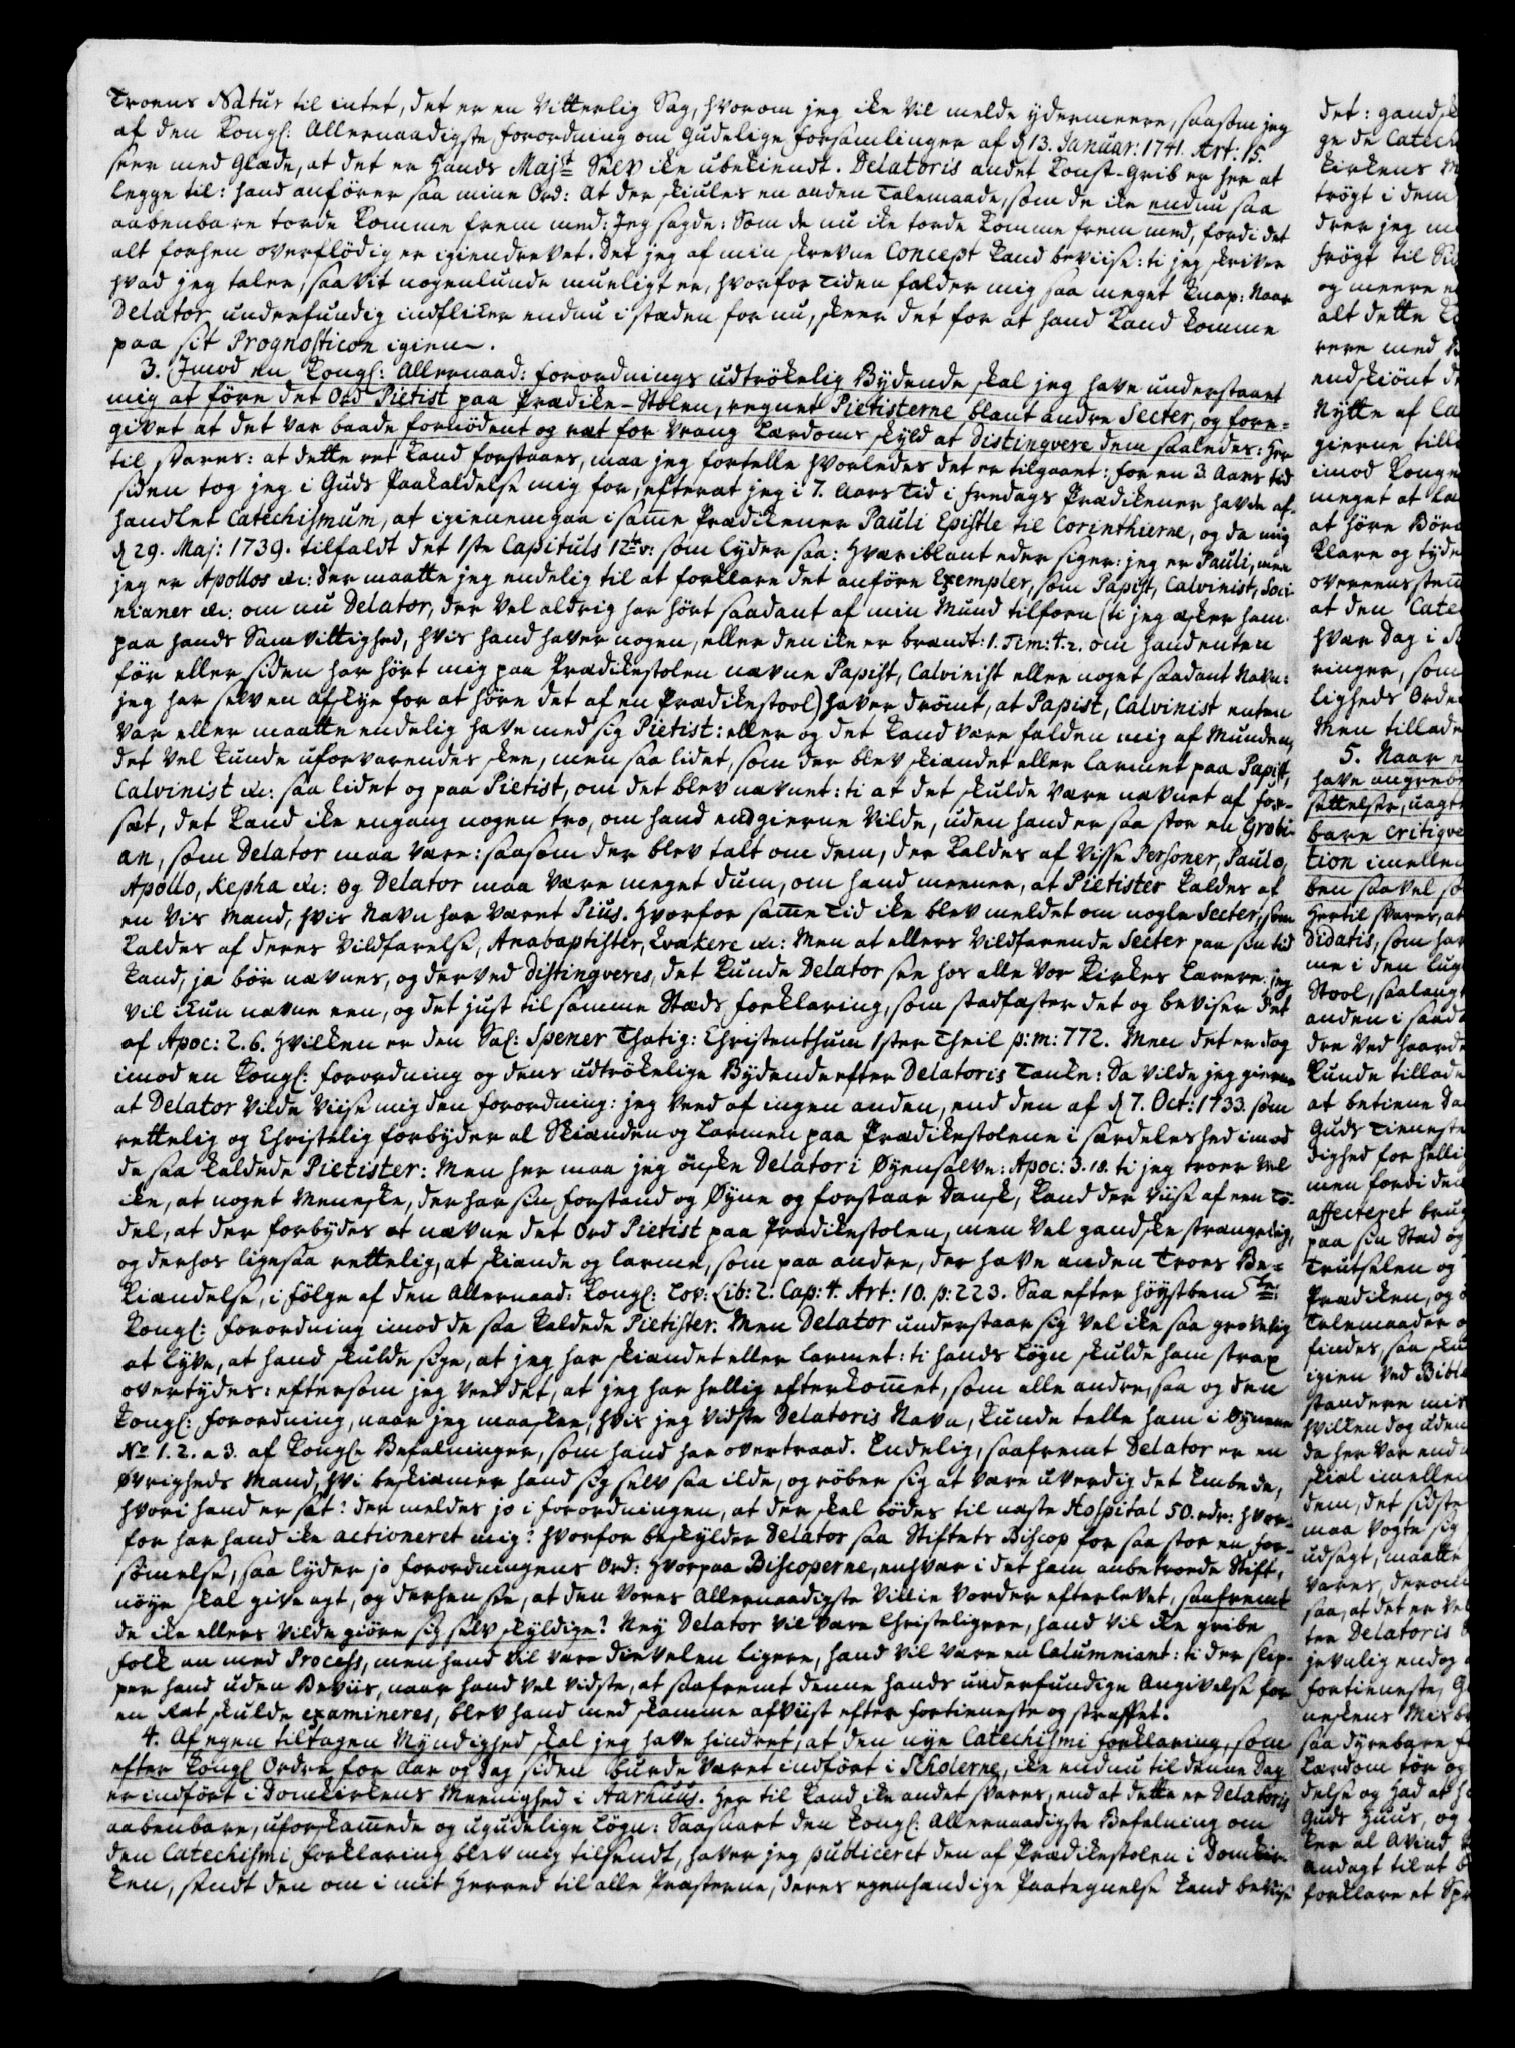 Troens Natur til intet, det er en vitterlig Sag, hvorom jeg ike vil melde ydermeere, saasom jeg
af den Kongl: Allernaadigste forordning om Gudelige forsamlinger af d 13. Januar: 1741. Art: 15.
seer med Glæde, at det er Hands Majst Selv ike ubekiendt. Delatoris andet Konst-Grib er her at
legge til: hand anfører saa mine Ord: At der skiules en anden Talemaade, som de ike endnu saa
aabenbare torde komme frem med: Jeg sagde: Som de nu ike torde komme frem med, fordi det
alt forhen overflødig er igiendrevet. Det jeg af min skrevne Concept kand beviise: ti jeg skriver
hvad jeg taler, saavit nogenlunde mueligt er, hvorfor Tiden falder mig saa meget knap: Naar
Delator underfundig indfliker endnu i stæden for nu, skeer det for at hand kand komme
paa sit Prognosticon igien.
3. Imod en Kongl: Allernaad: forordnings udtrökelig Bydende skal jeg have understaaet
mig at före det Ord Pietist paa Prædike-Stolen, regnet Pietisterne blant andre Secter, og fore-
givet at det var baade fornödent og ræt for vrang Lærdoms skyld at Distingvere dem saaledes: Her
til svares: at dette ret kand forstaaes, maa jeg fortelle hvorledes det er tilgaaet: for en 3 Aars tid
siden tog jeg i Guds Paakaldelse mig for, efterat jeg i 7. Aars Tid i fredags Prædikener havde af-
handlet Catechismum, at igiennemgaa i samme Prædikener Pauli Epistle til Corinthierne, og da mig
d 29. Maj: 1739. tilfaldt det 1ste Capituls 12te v: som lyder saa: Hver iblant eder siger: jeg er Pauli, men
jeg er Apollos &c: Der maatte jeg endelig til at forklare det anföre Exempler, som Papist, Calvinist, Soci
nianer &c: om nu Delator, der vel aldrig har hört saadant af min Mund tilforn (ti jeg æsker ham
paa hands Samvittighed, hvis hand haver nogen, eller den ike er brændt: 1. Tim: 4.2. om hand enten
för eller siden har hört mig paa Prædikestolen nævne Papist, Calvinist eller noget saadant Navn:
jeg har selv en afskye for at höre det af en Prædikestool) haver drömt, at Papist, Calvinist enten
var eller maatte endelig have med sig Pietist: eller og det kand være falden mig af Munden,
det vel kunde uforvarendes skee, men saa lidet, som der blev skiændet eller larmet paa Papist,
Calvinist &c: saa lidet og paa Pietist, om det blev nævnet: ti at det skulde være nævnet af for-
sæt, det kand ike engang nogen tro, om hand end gierne vilde, uden hand er saa stor en Grobi-
an, som Delator maa være: saasom der blev talt om dem, der kaldes af visse Personer, Paulo,
Apollo, Kepha &c: og Delator maa være meget dum, om hand meener, at Pietister kaldes af
en vis Mand, hvis Navn har været Pius. Hvorfor samme Tid ike blev meldet om nogle Secter, som
kaldes af deres vildfarelse, Anabaptister, Kvækere &c: Men at ellers vildfarende Secter paa sin tid
kand, ja bör nævnes, og derved Distingveres, det kunde Delator see hos alle vor Kirkes Lærere: jeg
vil kun nævne een, og det just til samme Stæds forklaring, som stadfæster det og beviser det
af Apoc: 2.6. Hvilken er den Sal: Spener Thätig: Christenthum 1ster Theil p:m: 772. Men det er dog
imod en Kongl: forordning og dens udtrökelige Bydende efter Delatoris Tanke: Da vilde jeg gierne
at Delator vilde viise mig den forordning: jeg veed af ingen anden, end den af d 7. Oct: 1733. som
rettelig og Christelig forbyder al Skiænden og Larmen paa Prædikestolene i særdeleshed imod
de saa kaldede Pietister: Men her maa jeg önske Delatori Øyensalve: Apoc: 3.18. ti jeg troer vel
ike, at noget Menneske, der har sin forstand og Øyne og forstaar Dansk, kand der viise af een Tö-
del, at der forbydes at nævne det Ord Pietist paa Prædikestolen, men vel gandske strængelig,
og derhos ligesaa rettelig, at skiænde og larme, som paa andre, der have anden Troes Be-
kiændelse, i fölge af den Allernaad: Kongl: Lov: Lib: 2. Cap: 4. Art: 10. p: 223. Saa efter höystbemte
Kongl: forordning imod de saa kaldede Pietister. Men Delator understaar sig vel ike saa grovelig
at lyve, at hand skulde sige, at jeg har skiændet eller larmet: ti hands Lögn skulde ham strax
overtydes: eftersom jeg veed det, at jeg har hellig efterkommet, som alle andre, saa og den
Kongl: forordning, naar jeg maaskee, hvis jeg vidste Delatoris Navn, kunde telle ham i Øynene
No 1. 2. a 3. af Kongl: Befalninger, som hand har overtraad. Endelig, saafremt Delator er en
Øvrigheds Mand, hvi beskiæmer hand sig selv saa ilde, og röber sig at være uverdig det Embede,
hvori hand er sat? der meldes jo i forordningen, at der skal bödes til næste Hospital 50. rdr: hvor-
for har hand ike actioneret mig? Hvorfor beskylder Delator saa Stiftets Biscop for saa stor en for-
sömelse, saa lyder jo forordningens Ord: Hvorpaa Biscoperne, enhver i det ham anbetroede Stift,
nöye skal give agt, og derhen see, at den vores Allernaadigste Villie vorder efterlevet, saafremt
de ike ellers vilde giöre sig selv skyldige? Ney Delator vil være Christeligere, hand vil ike gribe
folk an med Process, men hand vil være Dievelen ligere, hand vil være en Calumniant: ti der slip-
per hand uden Beviis, naar hand vel vidste, at saafremt denne hands underfundige Angivelse for
en Ræt skulde examineres, blev hand med skamme afviist efter fortieneste og straffet.
4. Af egen tiltagen Myndighed skal jeg have hindret, at den nye Catechismi forklaring, som
efter Kongl Ordre for Aar og Dag siden burde været indfört i Scholerne, ike endnu til denne Dag
er indfört i Domkirkens Meenighed i Aarhuus. Her til kand ike andet svares, end at dette er Delatoris
aabenbare, uforskammede og ugudelige Lögn: Saasnart den Kongl: Allernaadigste Befalning om
den Catechismi forklaring blev mig tilsendt, haver jeg publiceret den af Prædikestolen i Domkir-
ken, sendt den om i mit Herred til alle Præsterne, deres egenhændige Paategnelse kand bevise
det: gandsk
ge de Catech
Kirkens M
trögt i dem
drer jeg m
frögt til
og meere e
alt dette
rere med
endskiönt d
Nytte af
gierne till
imod Konge
meget at
at höre Börn
klare og tyde
overeenstem
at den Cate
hver Dag i
ringer, som
ligheds Orde
Men tillade
5. Naar
have angreb
settelser, uagt
bare critiqve
tion imellem
ben saavel so
Hertil svares, at
didatis, som har
me i den
Stool, saalangt
anden i
dre ved haarde
kunde tillade
at betiene Da
Guds Tieneste
dighed for hellig
men fordi den
affecteret brug
paa sin Stad og
Trætselen og
Prædiken, og
Talemaader o
findes, saa sku
igien ved Bibl
standere mis
hvilken dog uden
da her var end
skiel imellem
dem, det sidste
maa vogte sig
udsagt, maatte
vares, derom
saa, at det er ve
ter Delatoris
jevnlig endog
fortieneste,
neskens
saa dyrebare
Lærdom
delse og Had at
Guds Huus, og
ker al Avind
andagt til at
forklare et Sp